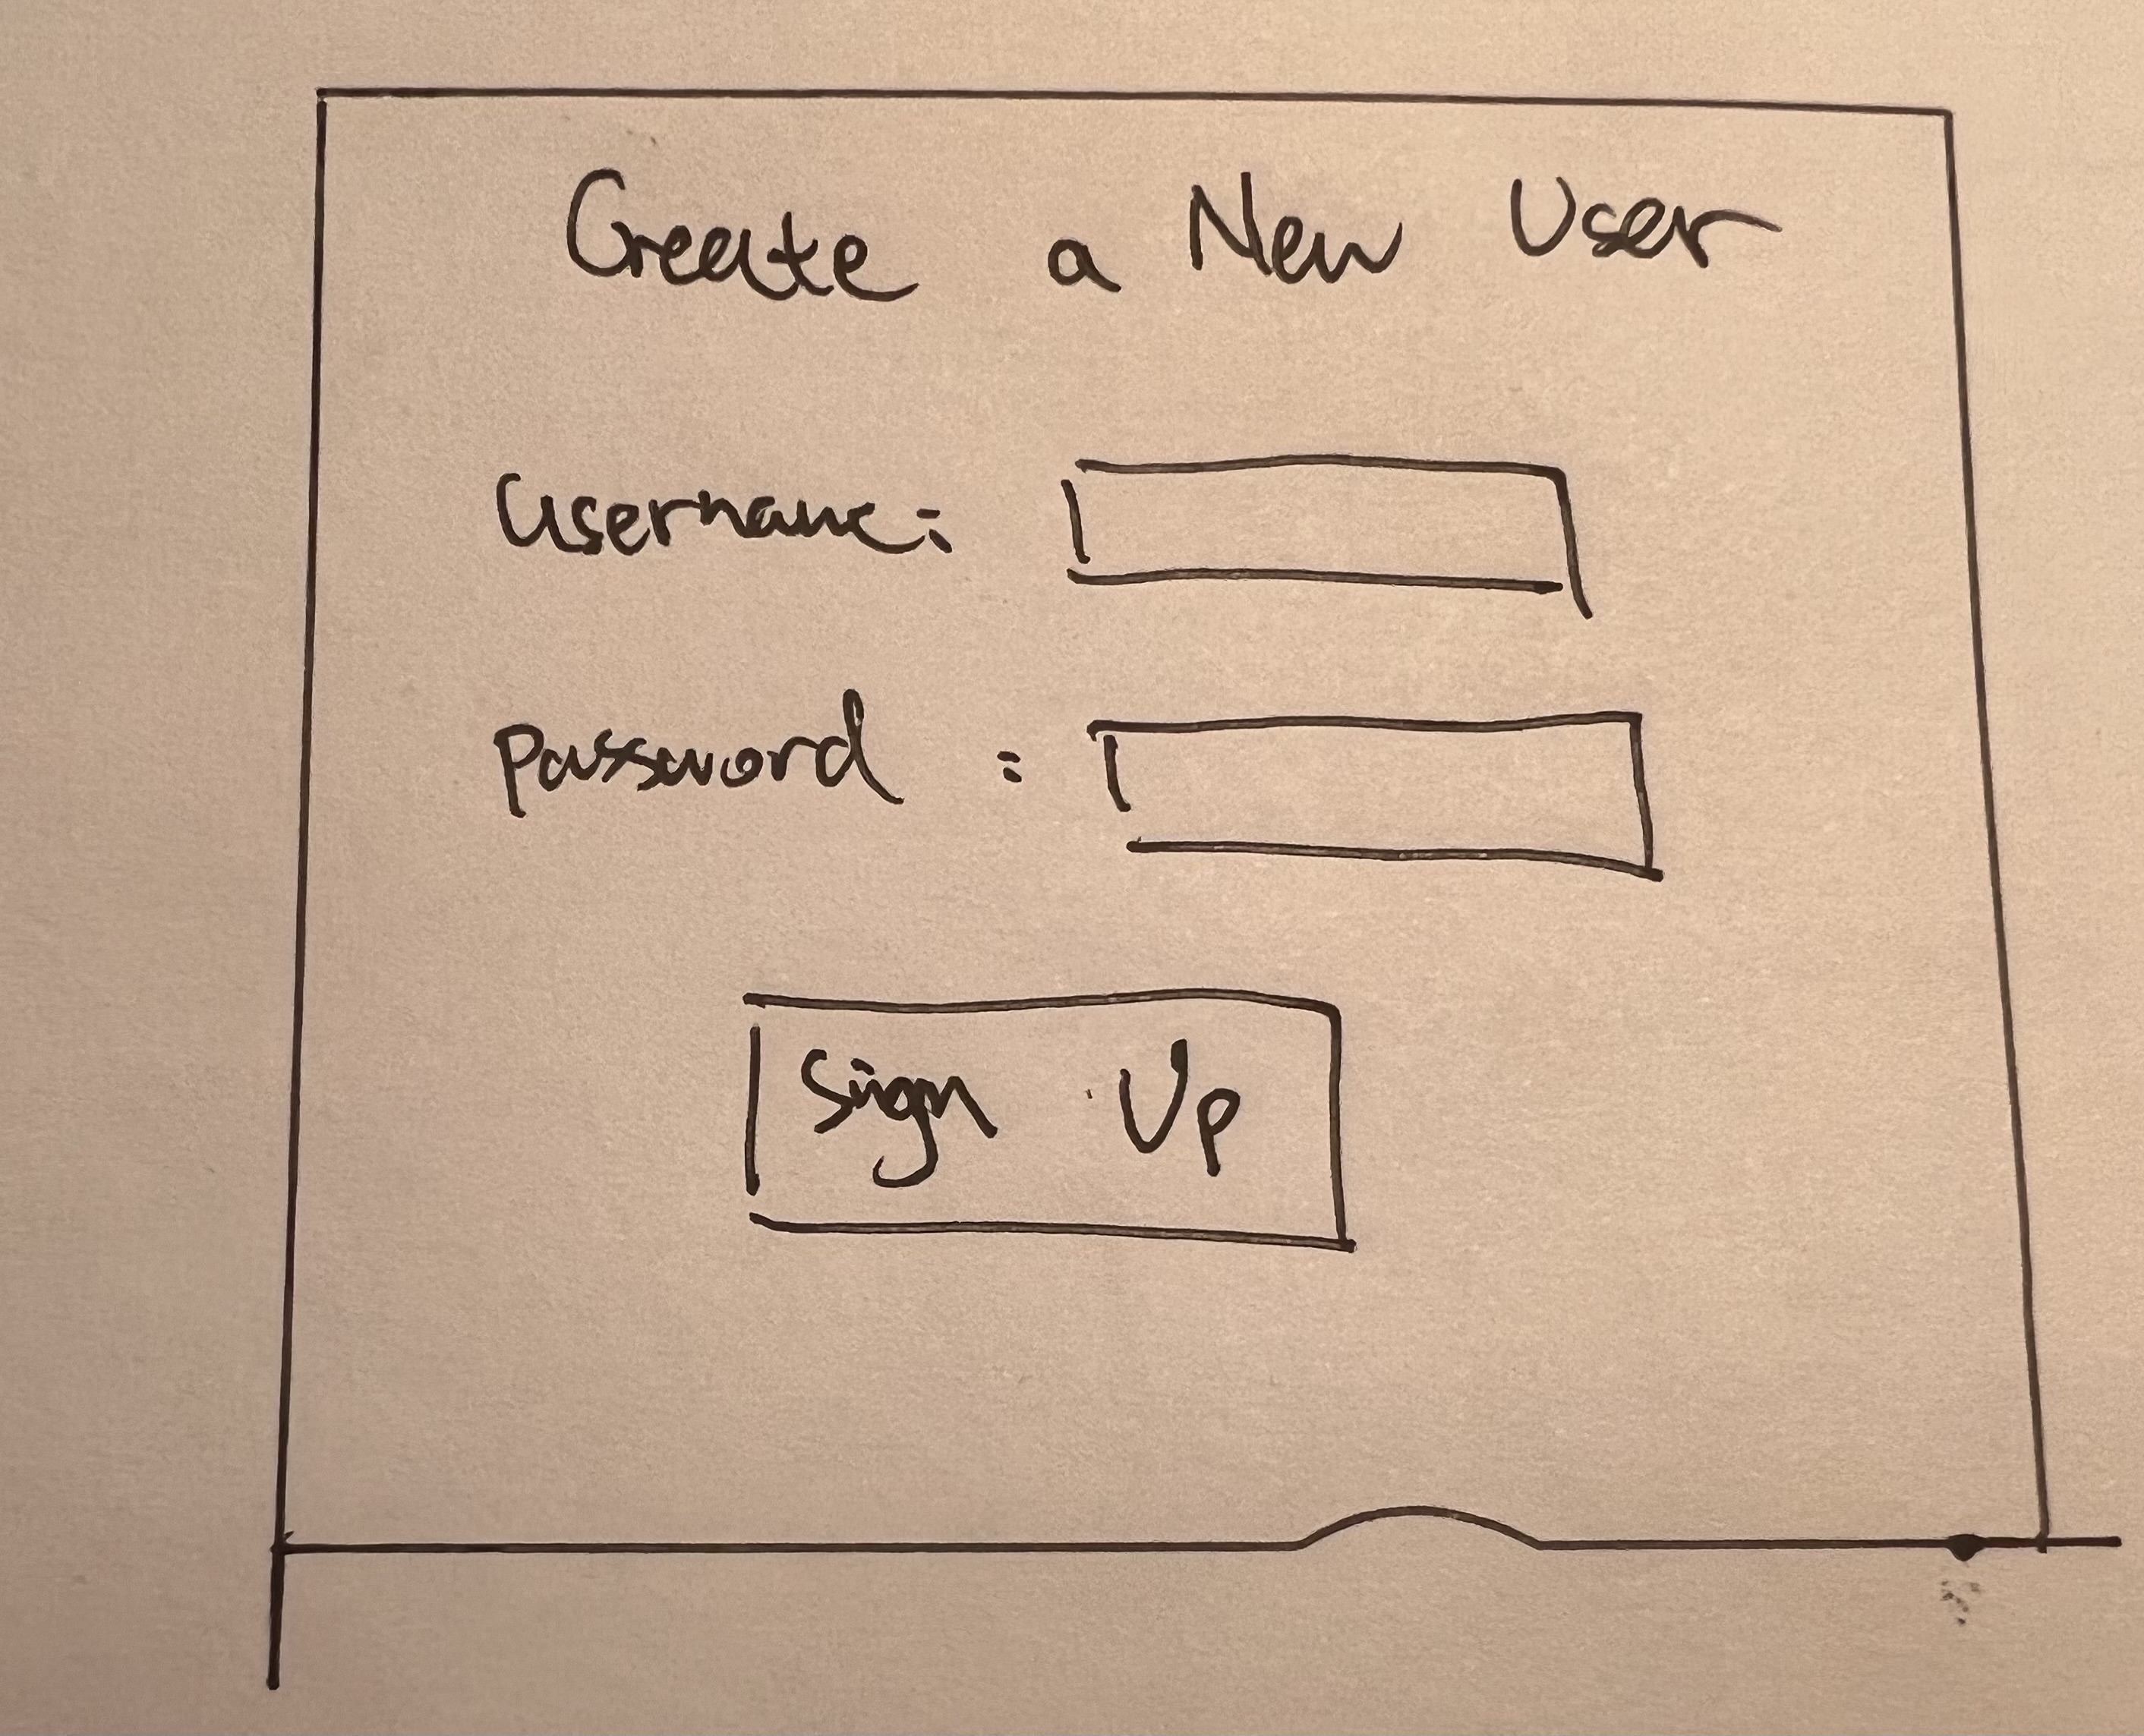 Create a New User
Username:
password :
Sign Up